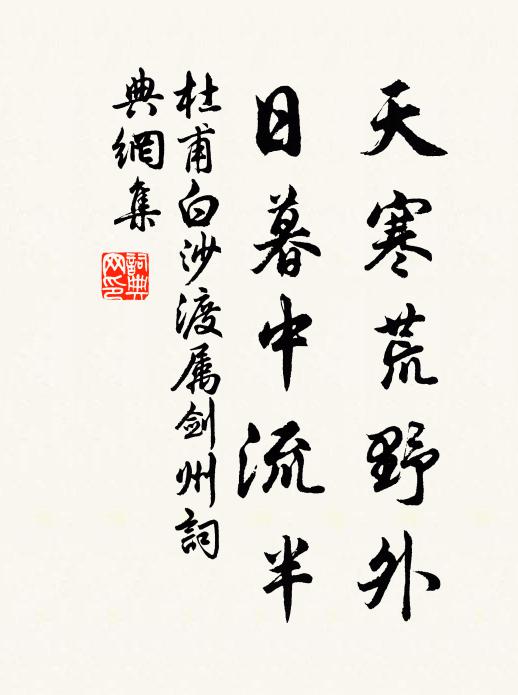 天寒荒野外
日暮中流半
杜甫白沙渡属剑州詞
典網集
詞典
网印